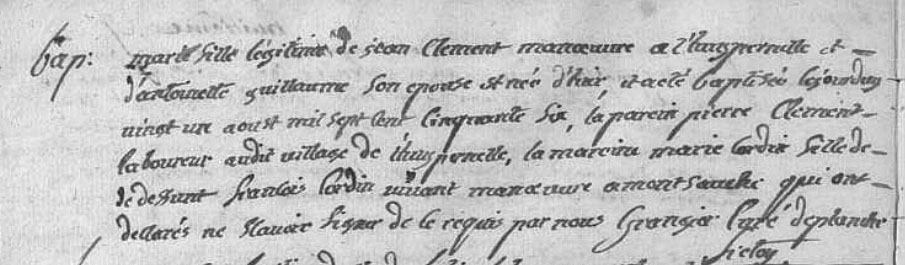 bap: marie fille légitime de jean Clement manœuvre a l'huis et
d'antoinette guillaume son epouse est née d'hier, et a eté baptisée ce jourduy
vingt un aoust mil sept cent Cinquante six, le parein pierre Clement
laboureur audit village de l'huis, la mareine marie Cordin fille de
de deffunt francois Cordin vivant manœuvre a montsauche qui ont
declarés ne scavoir signer de ce requis par nous Grangier Curé deplanche